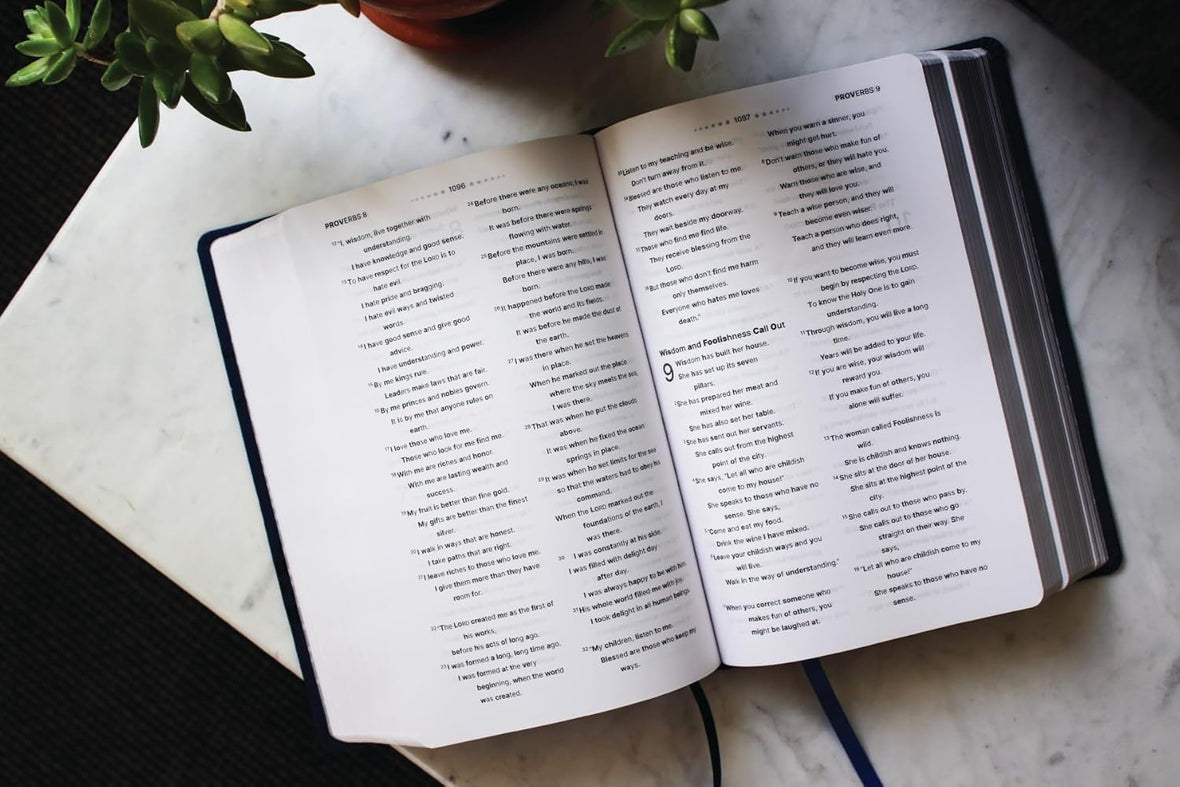 PROVERBS 8
1096
12"I, wisdom, live together with
understanding.
I have knowledge and good sense.
13To have respect for the LORD is to
hate evil.
I hate pride and bragging.
I hate evil ways and twisted
words.
14I have good sense and give good
advice.
I have understanding and power.
15By me kings rule.
Leaders make laws that are fair.
16By me princes and nobles govern.
It is by me that anyone rules on
earth.
17I love those who love me.
Those who look for me find me.
18With me are riches and honor.
With me are lasting wealth and
success.
19My fruit is better than fine gold.
My gifts are better than the finest
silver.
20I walk in ways that are honest.
I take paths that are right.
21I leave riches to those who love me.
I give them more than they have
room for.
22"The LORD created me as the first of
his works,
before his acts of long ago.
23I was formed a long, long time ago.
I was formed at the very
beginning, when the world
was created.
24Before there were any oceans, I was
born.
It was before there were springs
flowing with water.
25Before the mountains were settled in
place, I was born.
Before there were any hills, I was
born.
26It happened before the LORD made
the world and its fields.
It was before he made the dust of
the earth.
27I was there when he set the heavens
in place.
When he marked out the place
where the sky meets the sea,
I was there.
28That was when he put the clouds
above.
It was when he fixed the ocean
springs in place.
29It was when he set limits for the sea
so that the waters had to obey his
command.
When the LORD marked out the
foundations of the earth, I
was there.
30 I was constantly at his side.
I was filled with delight day
after day.
I was always happy to be with him.
31His whole world filled me with joy.
I took delight in all human beings.
32"My children, listen to me.
Blessed are those who keep my
ways.
1097
PROVERBS 9
33Listen to my teaching and be wise.
Don't turn away from it.
34Blessed are those who listen to me.
They watch every day at my
doors.
They wait beside my doorway.
35Those who find me find life.
They receive blessing from the
LORD.
36But those who don't find me harm
only themselves.
Everyone who hates me loves
death."
Wisdom and Foolishness Call Out
9 Wisdom has built her house.
She has set up its seven
pillars.
2She has prepared her meat and
mixed her wine.
She has also set her table.
3She has sent out her servants.
She calls out from the highest
point of the city.
4She says, "Let all who are childish
come to my house!"
She speaks to those who have no
sense. She says,
5"Come and eat my food.
Drink the wine I have mixed.
6Leave your childish ways and you
will live.
Walk in the way of understanding."
7When you correct someone who
makes fun of others, you
might be laughed at.
When you warn a sinner, you
might get hurt.
8Don't warn those who make fun of
others, or they will hate you.
Warn those who are wise, and
they will love you.
9Teach a wise person, and they will
become even wiser.
Teach a person who does right,
and they will learn even more.
10If you want to become wise, you must
begin by respecting the LORD.
To know the Holy One is to gain
understanding.
11Through wisdom, you will live a long
time.
Years will be added to your life.
12If you are wise, your wisdom will
reward you.
If you make fun of others, you
alone will suffer.
13The woman called Foolishness is
wild.
She is childish and knows nothing.
14She sits at the door of her house.
She sits at the highest point of the
city.
15She calls out to those who pass by.
She calls out to those who go
straight on their way. She
says,
16"Let all who are childish come to my
house!"
She speaks to those who have no
sense.